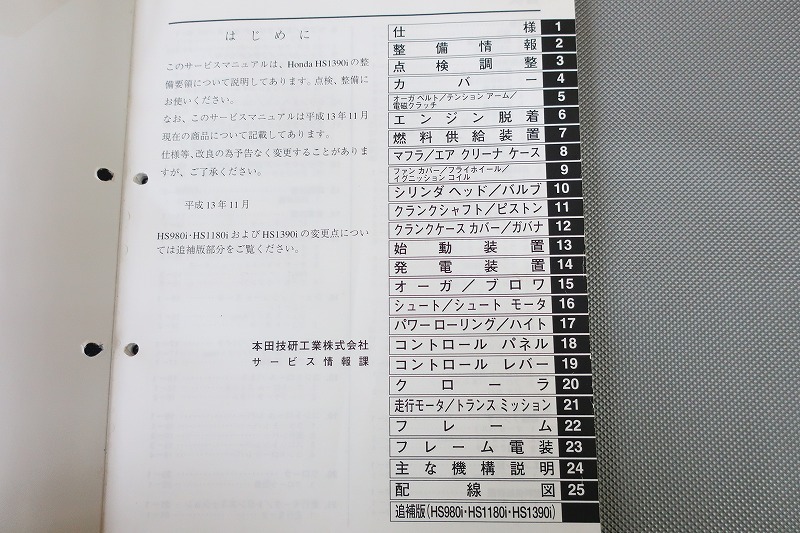 はじめに
このサービスマニュアルは、Honda HS1390iの整
備要領について説明してあります。点検、整備に
お使いください。
なお、このサービスマニュアルは平成13年11月
現在の商品について記載してあります。
仕様等、改良の為予告なく変更することがありま
すが、ご了承ください。
平成13年11月
HS980i・HS1180iおよびHS1390iの変更点につい
ては追補版部分をご覧ください。
本田技研工業株式会社
サービス情報課
仕様 1
整備情報 2
点検調整 3
カバー 4
オーガ ベルト／テンション アーム／
電磁クラッチ 5
エンジン脱着 6
燃料供給装置 7
マフラ／エア クリーナ ケース 8
ファン カバー／フライホイール／
イグニッション コイル 9
シリンダ ヘッド／バルブ 10
クランクシャフト／ピストン 11
クランクケース カバー／ガバナ 12
始動装置 13
発電装置 14
オーガ／ブロワ 15
シュート／シュート モータ 16
パワー ローリング／ハイト 17
コントロール パネル 18
コントロール レバー 19
クローラ 20
走行モータ／トランス ミッション 21
フレーム 22
フレーム電装 23
主な機構説明 24
配線図 25
追補版(HS980i・HS1180i・HS1390i)